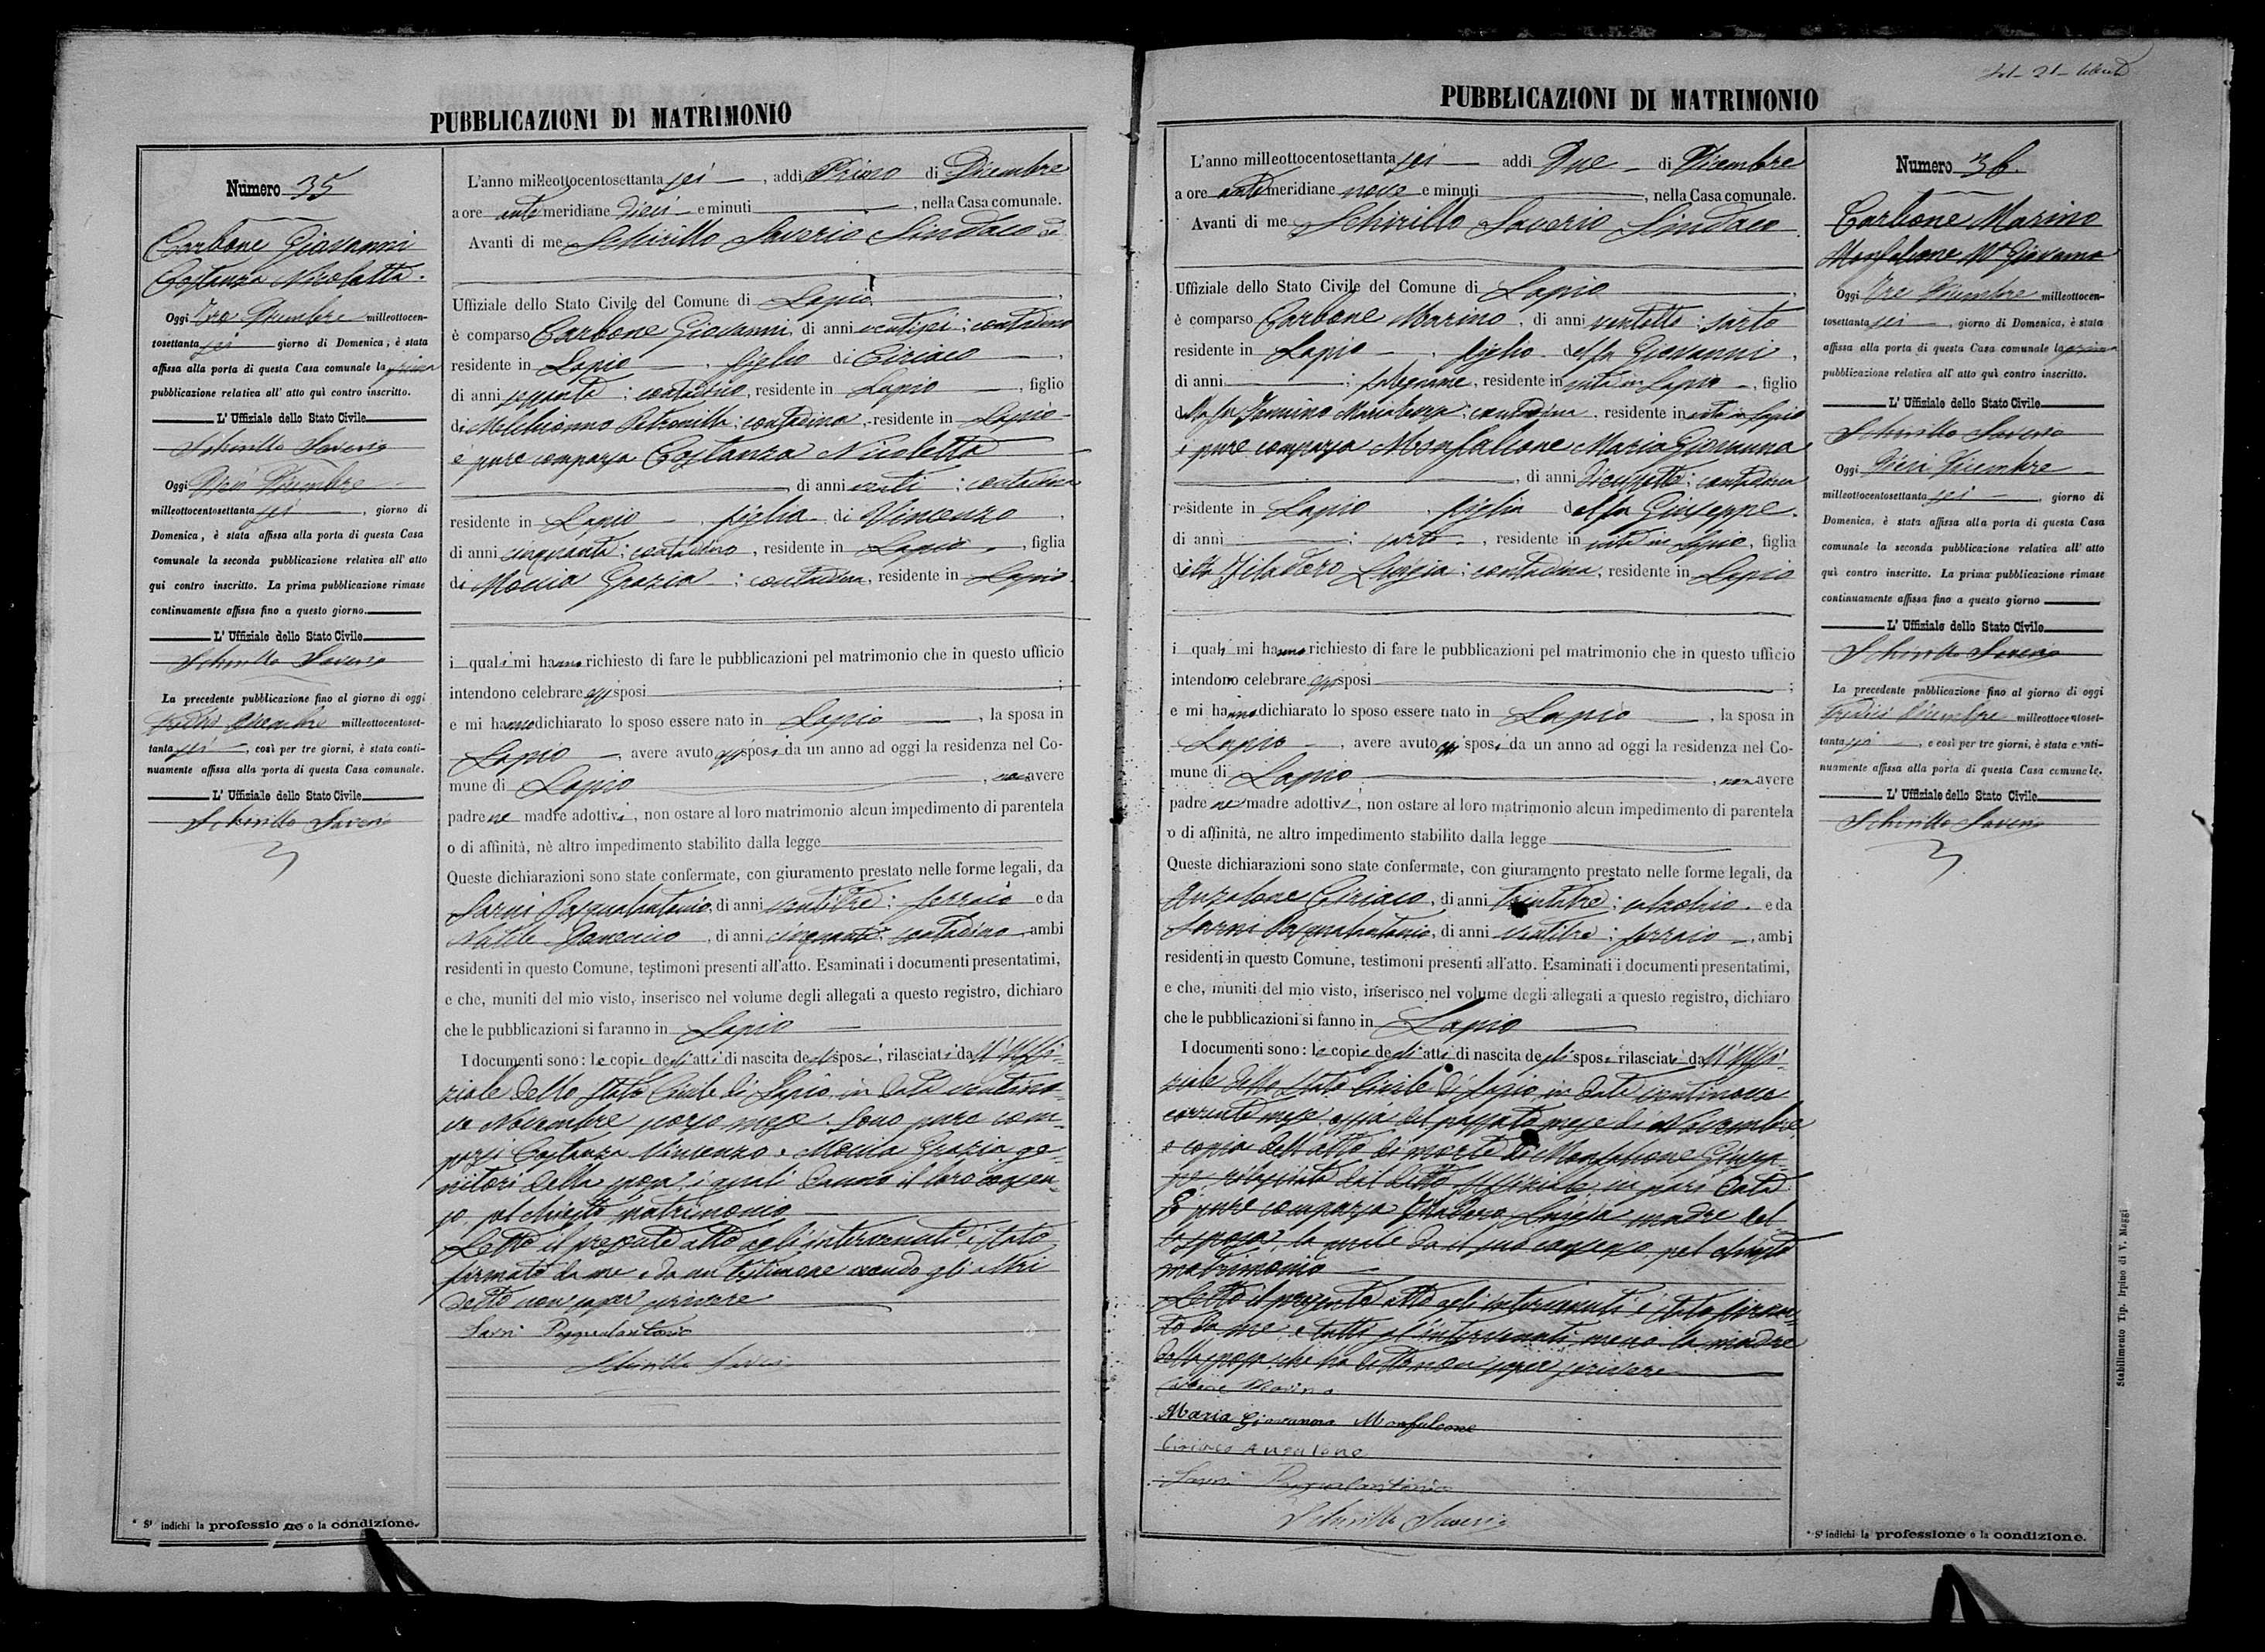 PUBBLICAZIONI DI MATRIMONIO
Numero 35
Carbone Giovanni
Costanza Nicoletta
Oggi Tre Dicembre milleottocen-
tosettanta sei giorno di Domenica, è stata
affissa alla porta di questa Casa comunale la prima
pubblicazione relativa all' atto quì contro inscritto.
L' Uffiziale dello Stato Civile
Schirillo Saverio
Oggi Dieci Dicembre
milleottocentosettanta sei, giorno di
Domenica, è stata affissa alla porta di questa Casa
comunale la seconda pubblicazione relativa all' atto
qui contro inscritto. La prima pubblicazione rimase
continuamente affissa fino a questo giorno.
L' Uffiziale dello Stato Civile
Schirillo Saverio
La precedente pubblicazione fino al giorno di oggi
tredici Dicembre milleottocentoset-
tanta sei, così per tre giorni, è stata conti-
nuamente affissa alla porta di questa Casa comunale.
L' Uffiziale dello Stato Civile
Schirillo Saverio
* Si indichi la professione o la condizione.
L'anno milleottocentosettanta sei, addì Primo di Dicembre
a ore antimeridiane dieci e minuti, nella Casa comunale.
Avanti di me Schirillo Saverio Sindaco ed
Uffiziale dello Stato Civile del Comune di Lapio,
è comparso Carbone Giovanni, di anni ventisei; contadino
residente in Lapio, figlio di Ciriaco,
di anni sessanta; contadino, residente in Lapio, figlio
di Melchionno Petronilla; contadina, residente in Lapio
e pure comparsa Costanza Nicoletta
, di anni venti; contadina
residente in Lapio, figlia di Vincenzo,
di anni cinquanta; contadino, residente in Lapio, figlia
di Moccia Grazia; contadina, residente in Lapio
i quali mi hanno richiesto di fare le pubblicazioni pel matrimonio che in questo ufficio
intendono celebrare essi sposi;
e mi hanno dichiarato lo sposo essere nato in Lapio, la sposa in
Lapio, avere avuto essi sposi da un anno ad oggi la residenza nel Co-
mune di Lapio, non avere
padre ne madre adottivi, non ostare al loro matrimonio alcun impedimento di parentela
o di affinità, nè altro impedimento stabilito dalla legge
Queste dichiarazioni sono state confermate, con giuramento prestato nelle forme legali, da
Sarni Pasqualantonio, di anni ventitre; ferraio e da
di anni cinquanta; contadino, ambi
residenti in questo Comune, testimoni presenti all'atto. Esaminati i documenti presentatimi,
e che, muniti del mio visto, inserisco nel volume degli allegati a questo registro, dichiaro
che le pubblicazioni si faranno in Lapio
I documenti sono: le copie degli atti di nascita degli sposi, rilasciati dall'Uffi-
ziale dello Stato Civile di Lapio in data ventino-
ve Novembre scorso mese. Sono pure com-
parsi Costanza Vincenzo e Moccia Grazia ge-
nitori della sposa, i quali danno il loro consen-
so pel chiesto matrimonio
Letto il presente atto agli intervenuti, è stato
firmato da me e da un testimone avendo gli altri
detto non saper scrivere
Sarni Pasqualantonio
Schirillo Saverio
PUBBLICAZIONI DI MATRIMONIO
L'anno milleottocentosettanta sei addì Due di Dicembre
a ore antimeridiane nove e minuti, nella Casa comunale.
Avanti di me Schirillo Saverio Sindaco
Uffiziale dello Stato Civile del Comune di Lapio,
è comparso Carbone Marino, di anni ventotto; sarto
residente in Lapio, figlio del fu Giovanni,
di anni; falegname, residente in vita in Lapio, figlio
della fu Iannino Maria Teresa; contadina, residente in vita in Lapio
è pure comparsa Monfalcone Maria Giovanna
, di anni diciassette; contadina
residente in Lapio, figlia del fu Giuseppe,
di anni; sarto, residente in vita in Lapio, figlia
della Filadoro Luigia; contadina, residente in Lapio
i quali mi hanno richiesto di fare le pubblicazioni pel matrimonio che in questo ufficio
intendono celebrare essi sposi;
e mi hanno dichiarato lo sposo essere nato in Lapio, la sposa in
Lapio, avere avuto essi sposi da un anno ad oggi la residenza nel Co-
mune di Lapio, non avere
padre ne madre adottivi, non ostare al loro matrimonio alcun impedimento di parentela
o di affinità, ne altro impedimento stabilito dalla legge
Queste dichiarazioni sono state confermate, con giuramento prestato nelle forme legali, da
Anzalone Ciriaco, di anni trentatre; calzolaio e da
Sarni Pasqualantonio, di anni ventitre; ferraio, ambi
residenti in questo Comune, testimoni presenti all'atto. Esaminati i documenti presentatimi,
e che, muniti del mio visto, inserisco nel volume degli allegati a questo registro, dichiaro
che le pubblicazioni si fanno in Lapio
I documenti sono: le copie degli atti di nascita degli sposi rilasciati dall'Uffi-
ziale dello Stato Civile di Lapio in data ventinove
corrente mese, ossia del passato mese di Novembre,
e copia dell'atto di morte di Monfalcone Giusep-
pe, rilasciata dal detto Uffiziale in pari data
È pure comparsa Filadoro Luigia madre del-
la sposa, la quale dà il suo consenso pel chiesto
matrimonio
Letto il presente atto agli intervenuti è stato firma-
to da me e tutti gl'intervenuti meno la madre
della sposa che ha detto non saper scrivere
Carbone Marino
Maria Giovanna Monfalcone
Ciriaco Anzalone
Sarni Pasqualantonio
Schirillo Saverio
Numero 36.
Carbone Marino
Monfalcone Mª Giovanna
Oggi Tre Dicembre milleottocen-
tosettanta sei, giorno di Domenica, è stata
affissa alla porta di questa Casa comunale la prima
pubblicazione relativa all' atto quì contro inscritto.
L' Uffiziale dello Stato Civile
Schirillo Saverio
Oggi Dieci Dicembre
milleottocentosettanta sei, giorno di
Domenica, è stata affissa alla porta di questa Casa
comunale la seconda pubblicazione relativa all' atto
quì contro inscritto. La prima pubblicazione rimase
continuamente affissa fino a questo giorno
L' Uffiziale dello Stato Civile
Schirillo Saverio
La precedente pubblicazione fino al giorno di oggi
tredici Dicembre milleottocentoset-
tanta sei, e così per tre giorni, è stata conti-
nuamente affissa alla porta di questa Casa comunale.
L' Uffiziale dello Stato Civile
Schirillo Saverio
* Si indichi la professione o la condizione.
Stabilimento Tip. Irpino di V. Maggi